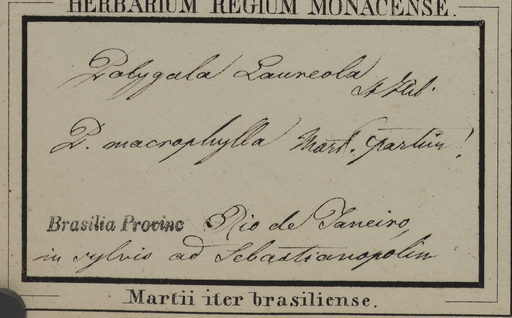 HERBARIUM REGIUM MONACENSE.
Polygala Laureola
St Hil.
P. macrophylla Mart. partim!
Brasilia Provinc Rio de Janeiro,
in sylvis ad Sebastianopolin
Martii iter brasiliense.